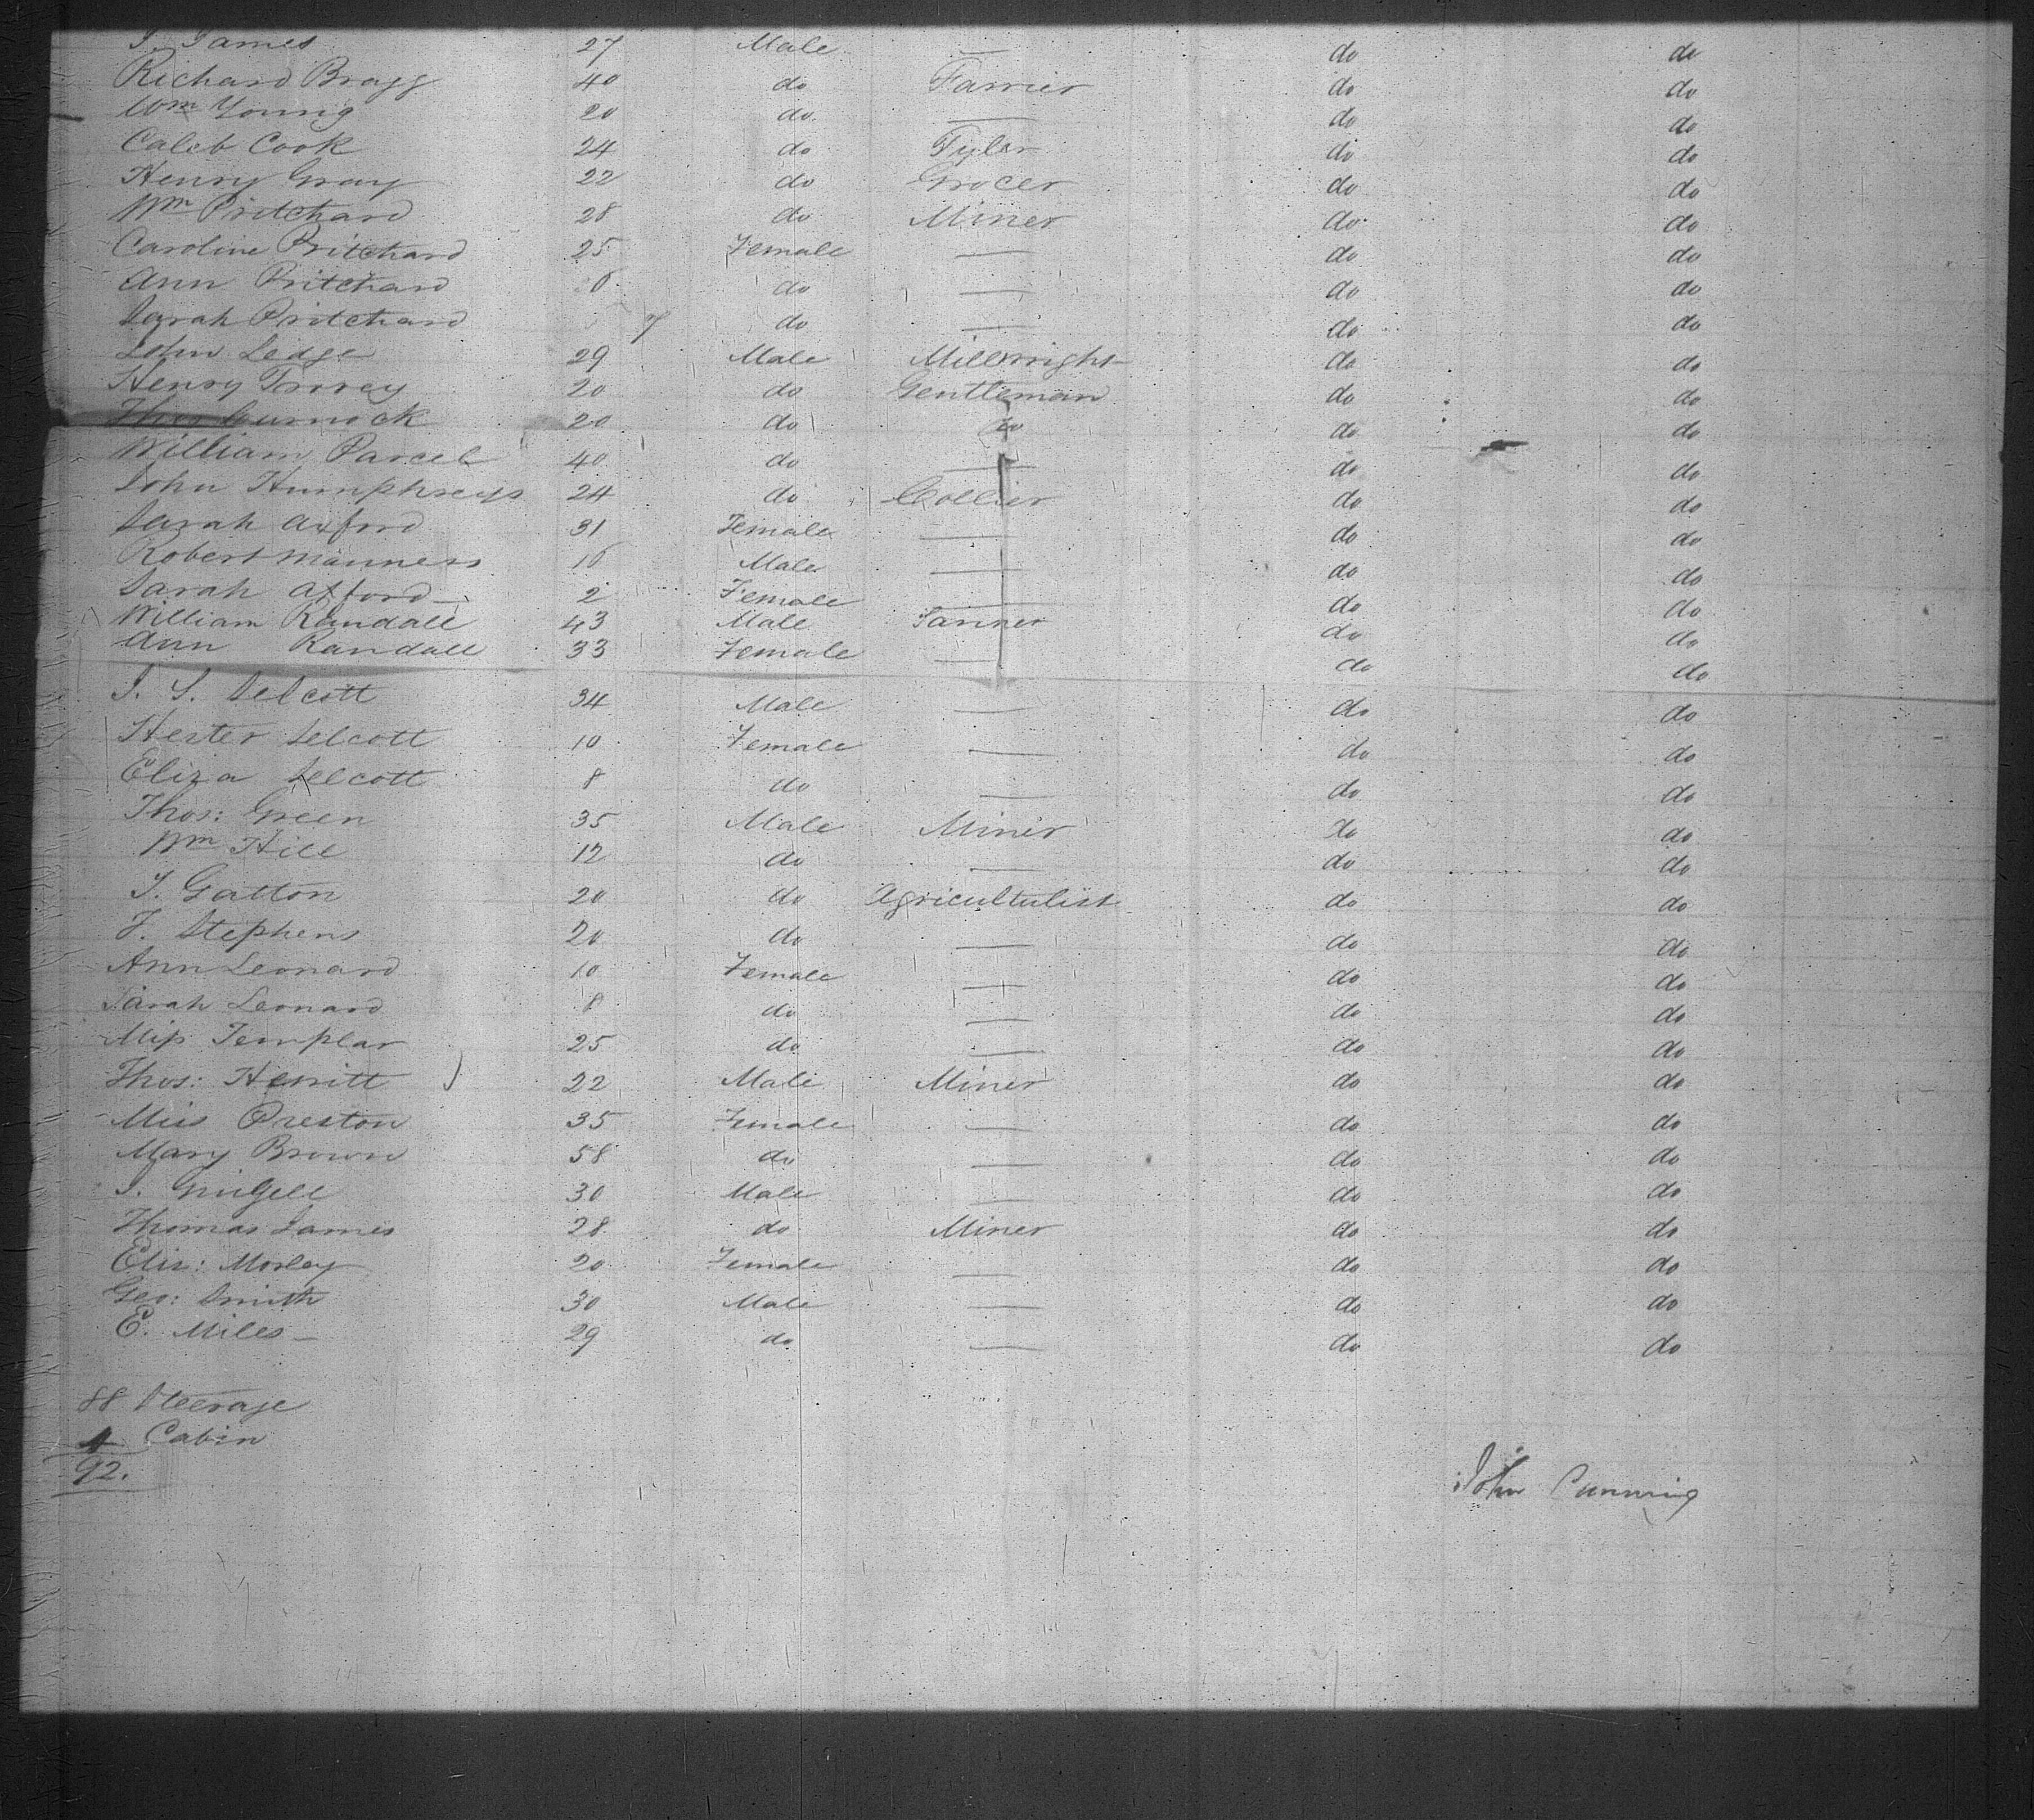 J. James 27 Male — do do
Richard Bragg 40 do Farrier do do
Wm Young 20 do — do do
Caleb Cook 24 do Tyler do do
Henry Gray 22 do Grocer do do
Wm Pritchard 28 do Miner do do
Caroline Pritchard 25 Female — do do
Ann Pritchard 6 do — do do
Sarah Pritchard 7 do — do do
John Ledge 29 Male Millwright do do
Henry 20 do Gentleman do do
Thos Curnock 20 do do do do
William Parcel 40 do — do do
John Humphreys 24 do Collier do do
Sarah Axford 31 Female — do do
Robert Manners 16 Male — do do
Sarah Axford 2 Female — do do
William Randall 43 Male do do
Ann Randall 33 Female — do do
J. S. Selcott 34 Male — do do
Hester Selcott 10 Female — do do
Eliza Selcott 8 do — do do
Thos: Green 35 Male Miner do do
Wm Hill 12 do — do do
J. Gatton 20 do Agricultulist do do
F. Stephens 20 do — do do
Ann Leonard 10 Female — do do
Sarah Leonard 8 do — do do
Miss Templar 25 do — do do
Thos: Hewitt 22 Male Miner do do
Miss Preston 35 Female — do do
Mary Brown 58 do — do do
J. 30 Male — do do
Thomas James 28 do Miner do do
Eliz: Morley 20 Female — do do
Geo: Smith 30 Male — do do
E. Miles 29 do — do do
88 Steerage
4 Cabin
92.
John Cunning